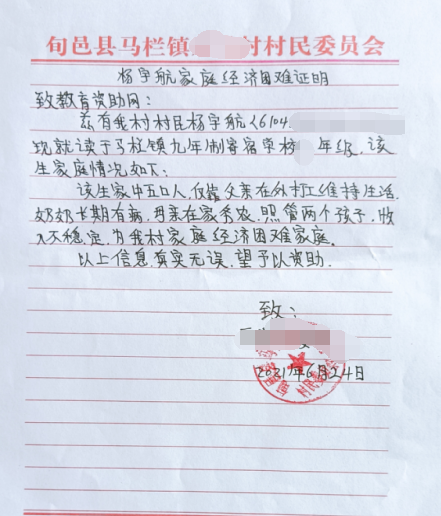 旬邑县马栏镇 村村民委员会
杨宇航家庭经济困难证明
致教育资助网：
兹有我村村民杨宇航（6104
现就读于马栏镇九年制寄宿学校 年级，该
生家庭情况如下：
该生家中五口人，仅靠父亲在外打工维持生活，
奶奶长期有病，母亲在家务农，照管两个孩子，收
入不稳定，为我村家庭经济困难家庭。
以上信息真实无误，望予以资助。
致：
2021年6月24日